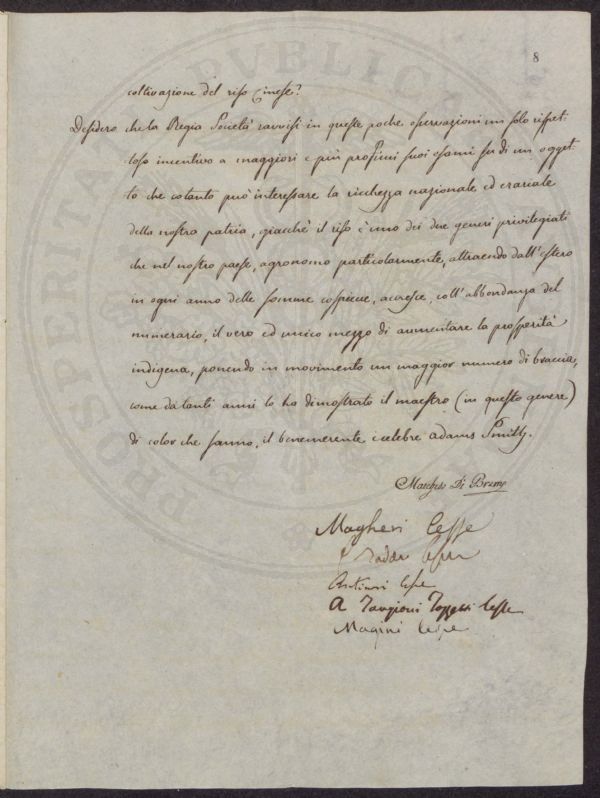 8
coltivazione del riso Cinese?
Desidero che la Regia Società ravvisi in queste poche osservazioni un solo rispet-
toso incentivo a maggiori e più proficui suoi esami su di un ogget-
to che cotanto può interessare la ricchezza nazionale ed erariale
della nostra patria, giacchè il riso è uno dei due generi privilegiati
che nel nostro paese, agronomo particolarmente, attraendo dall'estero
in ogni anno delle somme cospicue, accresce, coll'abbondanza del
numerario, il vero ed unico mezzo di aumentare la prosperità
indigena, ponendo in movimento un maggior numero di braccia,
come da tanti anni lo ha dimostrato il maestro (in questo genere)
di color che sanno, il benemerente e celebre adams Smith.
Marchese Di Breme
Magheri
Taddei
Antinori
A Targioni Tozzetti
Magini
PROSPERITATI PVBLICAE